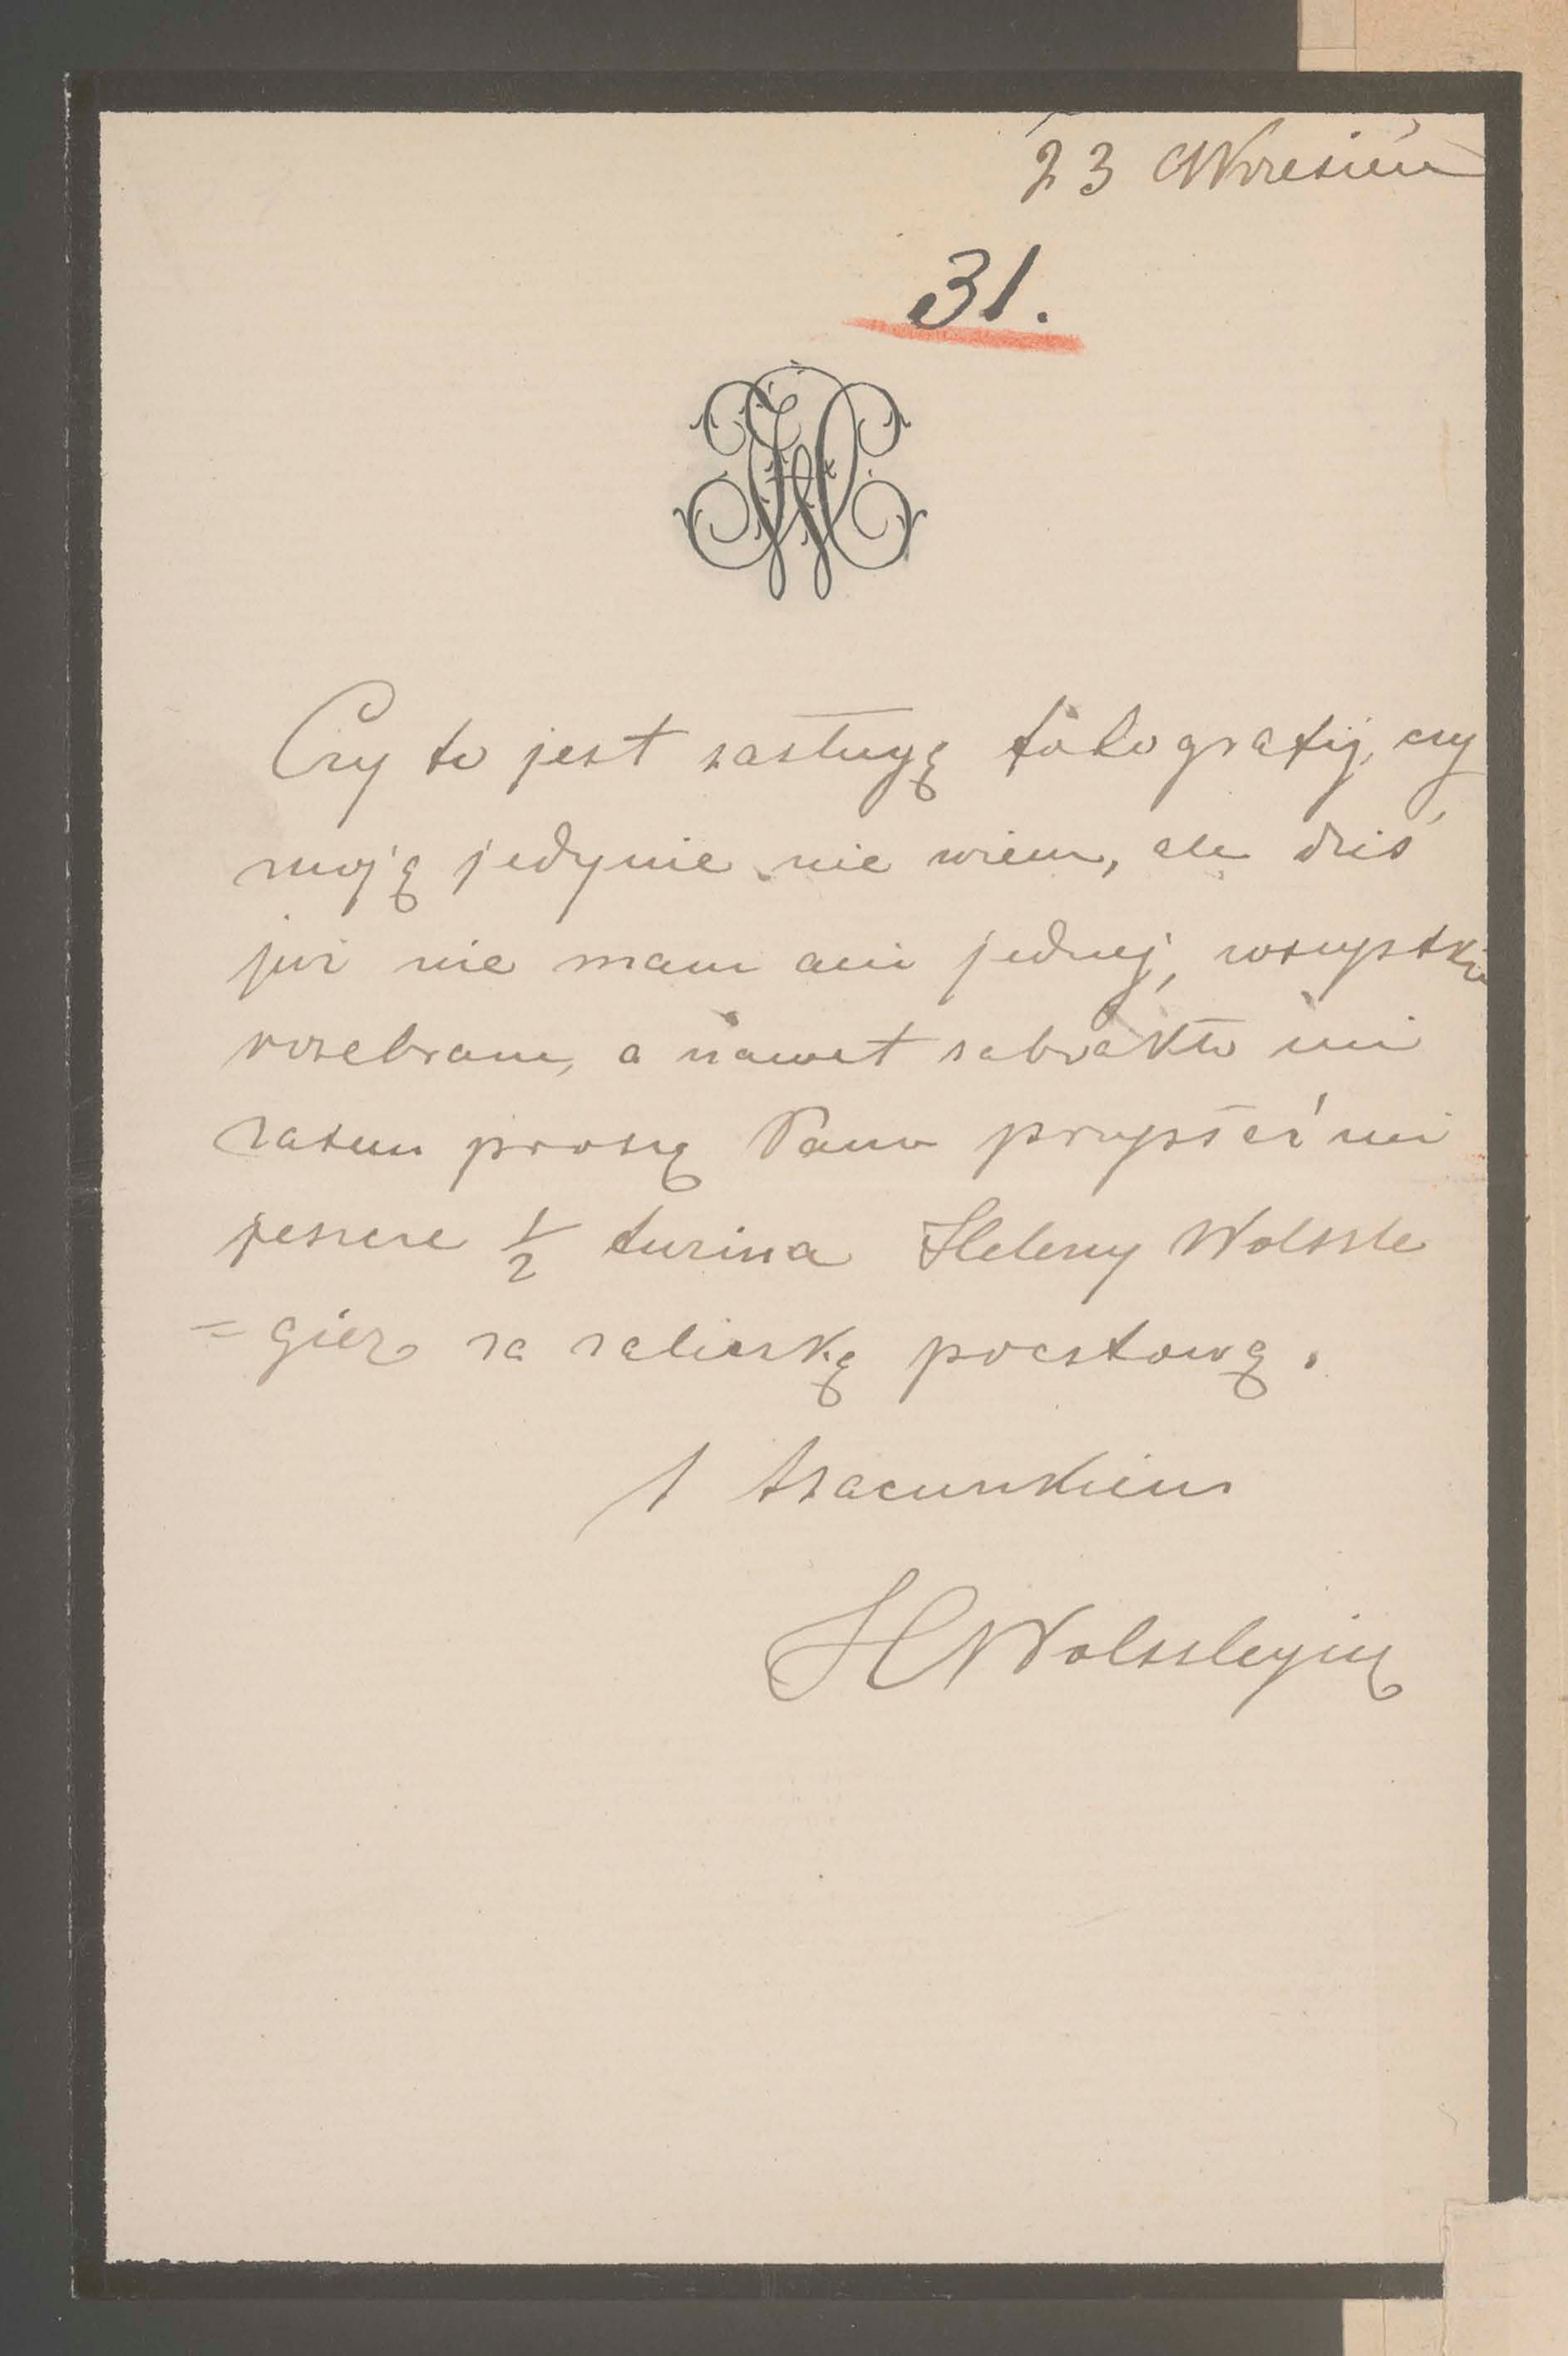 23 Wrzesień
31.
Czy to jest zasługą fotografij, czy
moją jedynie nie wiem, ale dziś
już nie mam ani jednej, wszystkie
rozebrano, a nawet zabrakło mi
zatem proszę Pana przyszłéj mi
jeszcze 1/2 tuzina Heleny Wolszle
=gier za zaliczką pocztową.
Z szacunkiem
HWolszlegier